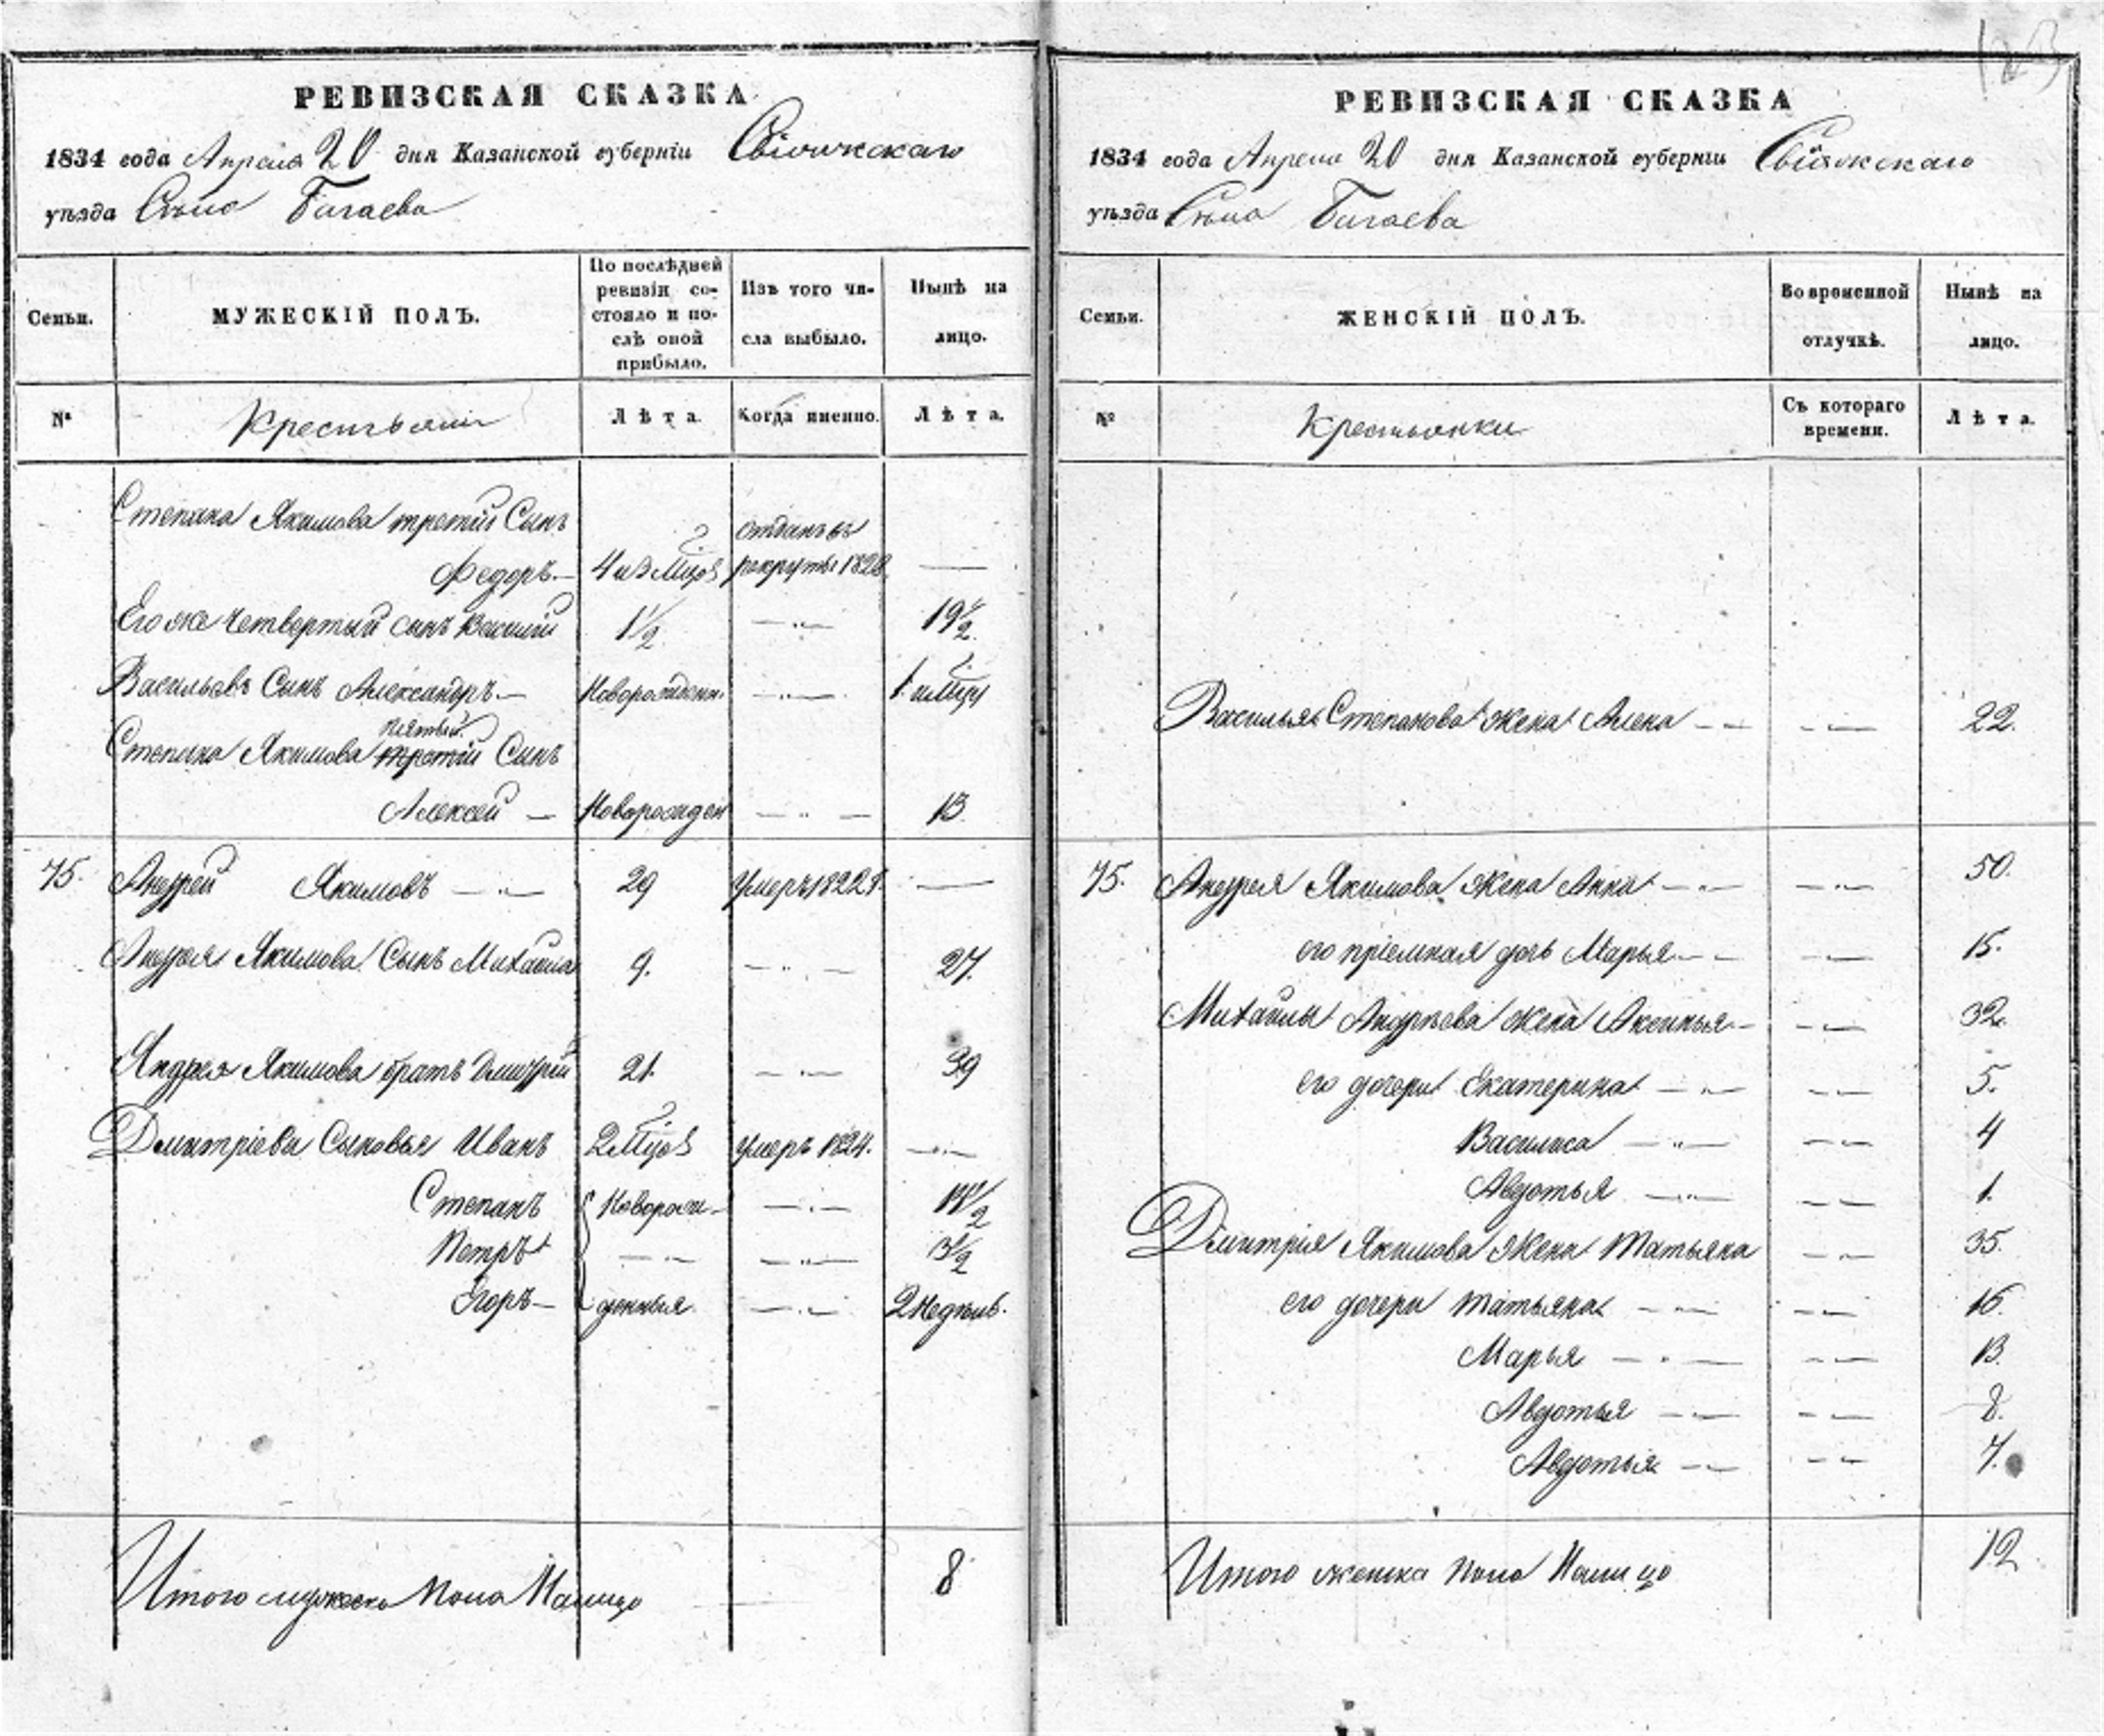 РЕВИЗСКАЯ СКАЗКА
1834 года Апреля 20 дня Казанской губерніи Свіяжскаго
уѣзда Села Бигаева
Семьи.
МУЖЕСКІЙ ПОЛЪ.
По послѣдней ревизіи со-
стояло и по-
слѣ оной
прибыло.
Изъ того чи-
сла выбыло.
Нынѣ на
лицо.
№
Крестьяни
Лѣта.
Когда именно.
Лѣта.
Степана Якимова третій Сынъ
Федоръ — 4 и 3 Мцов отданъ въ рекруты 1828 —
Его же Четвертый сынъ Василий 1½ — " — 19½
Васильевъ Сынъ Александръ — Новорожденн. — " — 1 Мцу
Степана Якимова третій пятый Сынъ
Алексей — Новорожден — " — 13
75. Андрей Якимовъ — " — 29 Умеръ 1822 г. —
Андрея Якимова Сынъ Михайла 9. — " — 27.
Андрея Якимова братъ Дмитрій 21. — " — 39
Дмитріева Сыновья Иванъ 2 Мцов Умеръ 1824. — " —
Степанъ Новорож- — " — 14½
Петръ — " — — " — 3½
Егоръ — денныя — " — 2 Недель.
Итого мужеска Пола Налицо 8
РЕВИЗСКАЯ СКАЗКА
1834 года Апреля 20 дня Казанской губерніи Свіяжскаго
уѣзда Села Бигаева
Семьи.
ЖЕНСКІЙ ПОЛЪ.
Во временной
отлучкѣ.
Нынѣ на
лицо.
№
Крестьянки
Съ котораго
времени.
Лѣта.
Василья Степанова жена Алена — " — — " — 22.
75. Андрея Якимова Жена Анна — " — — " — 50.
его пріемная дочь Марья — " — — " — 15.
Михайлы Андрѣева жена Аксинья — — " — 32.
его дочери Екатерина — " — — " — 5.
Василиса — " — — " — 4
Авдотья — " — — " — 1.
Дмитрія Якимова Жена Татьяна — " — 35.
его дочери Татьяна — " — — " — 16.
Марья — " — — " — 13.
Авдотья — " — — " — 8.
Авдотья — " — — " — 7.
Итого женска Пола Налицо 12